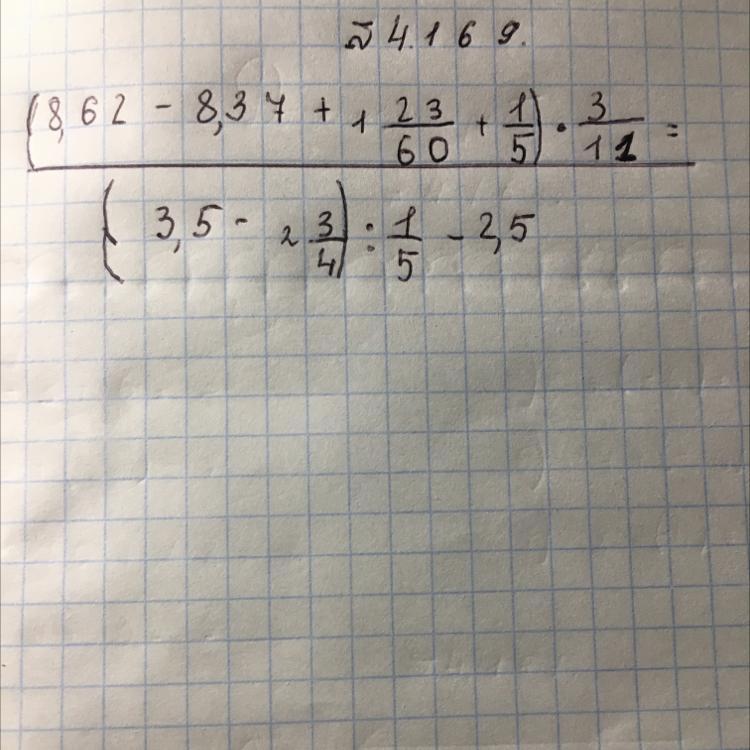 № 4.169.
(8,62 - 8,37 + 1 23/60 + 1/5) · 3/11 =
(3,5 - 2 3/4) : 1/5 - 2,5